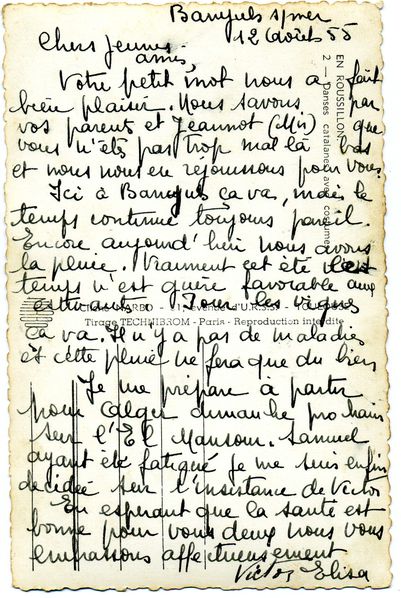 Banyuls s/mer
12 Août 55
Chers jeunes
amis,
Votre petit mot nous a fait
bien plaisir. Nous savons par
vos parents et Jeannot (Mir) que
vous n'êts pas trop mal là bas
et nous nous en réjouissons pour vous.
Ici à Banyuls ça va, mais le
temps continue toujours pareil.
Encore aujourd'hui nous avons
la pluie. Vraiment cet été le
temps n'est guère favorable aux
estivants. Pour les vignes
ça va. Il n'y a pas de maladies
et cette pluie ne fera que du bien
Je me prépare à partir
pour Alger dimanche prochain
sur l'El Mansour. Samuel
ayant été fatigué je me suis enfin
decidée sur l'insistance de Victor
En esperant que la santé est
bonne pour vous deux nous vous
embrassons affectueusement
Victor Elisa
EN ROUSSILLON
2 — Danses catalanes avec costumes
NARBO - 91, Avenue d'U.R.S.S. -
Tirage TECHNIBROM - Paris - Reproduction interdite